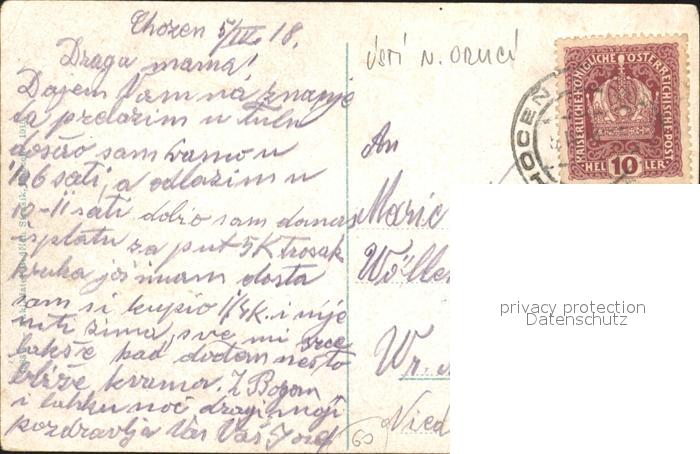 Chozen 5/III 18.
Draga mama!
Dajem Vam na znanje
da prelazim u Tuln
došao sam vamo u
1/2 6 sati, a odlazim u
10-11 sati dobio sam danas
isplatu za put 5K trošak
kruha još imam dosta
sam si kupio 1/4K. i nije
niti zima, sve mi srce
lakše kad dođem nešto
bliže k vama. Z Bogom
i lahku noć dragi moji
pozdravlja Vas Vaš Josef
ÚSTÍ N. ORLICÍ
An
Marie
Wölle
Wr.
Nied
60
KAISERLICHE KÖNIGLICHE ÖSTERREICHISCHE POST
HELLER
10
privacy protection
Datenschutz